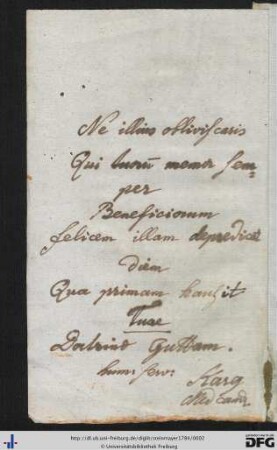 Ne illius obliviscaris
Qui tuorū memor sem=
per
Beneficiorum
felicem illam depredicat
diem
Qua primam hausit
Tuae
Doctrinae Guttam.
hum: serv:
Karg
Med Cand.
http://dl.ub.uni-freiburg.de/diglit/steinmayer1784/0002
© Universitätsbibliothek Freiburg
gefördert durch die
DFG